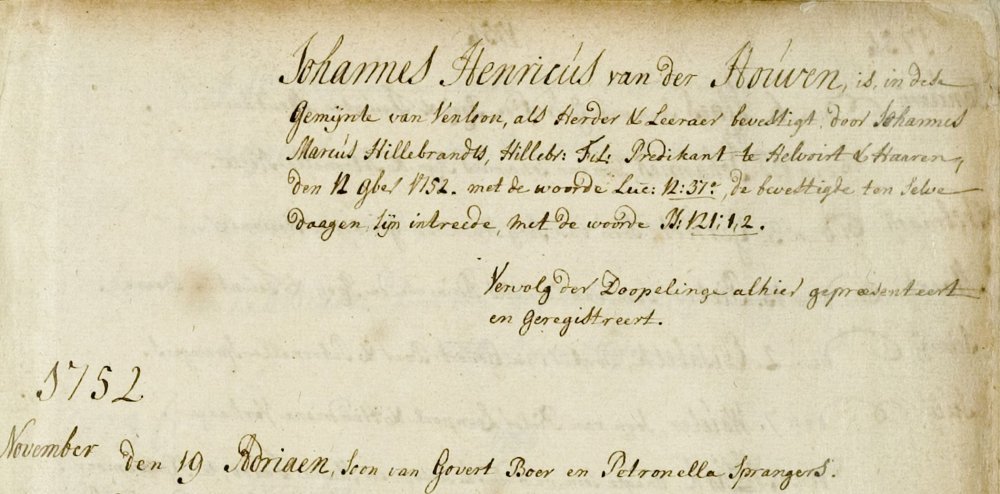 Johannes Henricus van der Houven, is, in dese
Gemijnte van Venloon, als Herder & Leeraer bevestigt, door Johannes
Marcus Hillebrandts, Hillebr: Fil: Predikant te Helvoirt & Haaren,
den 12 9bes 1752. met de woorde Luc: 12:37a, de bevestigde ten selve
daagen, sijn intreede, met de woorde Ps: 121:1,2.
Vervolg der Doopelinge alhier gepræsenteert
en Geregistreert.
1752
November den 19 Adriaen, soon van Govert Boer en Petronella Sprangers.